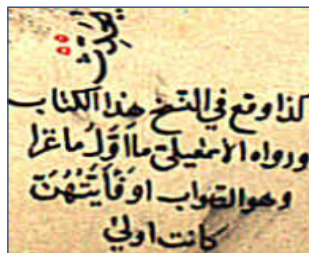 الحديث
كذا وقع في النسخ هذا الكتاب
ورواه الاسمعيلي ما اول ما غزا
وهو الصواب او فايتهن
كانت اولي